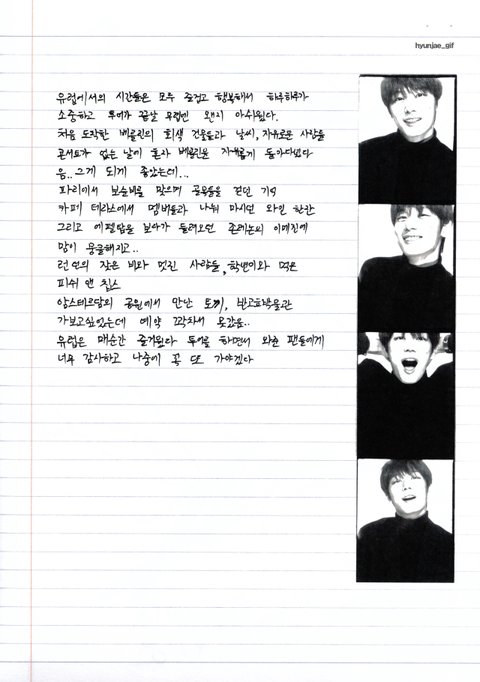 hyunjae_gif
유럽에서의 시간들은 모두 즐겁고 행복해서 하루하루가
소중하고 투어가 끝날 무렵엔 왠지 아쉬웠다.
처음 도착한 베를린의 회색 건물들과 날씨, 자유로운 사람들
콘서트가 없는 날에 혼자 베를린을 자유롭게 돌아다녔다
음.. 그게 되게 좋았는데...
파리에서 보슬비를 맞으며 골목들을 걷던 기억
카페 테라스에서 멤버들과 나눠 마시던 와인 한잔
그리고 에펠탑을 보다가 들려오던 존레논의 이매진에
맘이 뭉클해지고..
런던의 잦은 비와 멋진 사람들, 학년이와 먹은
피쉬 앤 칩스
암스테르담의 공원에서 만난 토끼, 반고흐박물관
가보고싶었는데 예약 꽉차서 못갔음..
유럽은 매순간 즐거웠다 투어를 하면서 와준 팬들에게
너무 감사하고 나중에 꼭 또 가야겠다